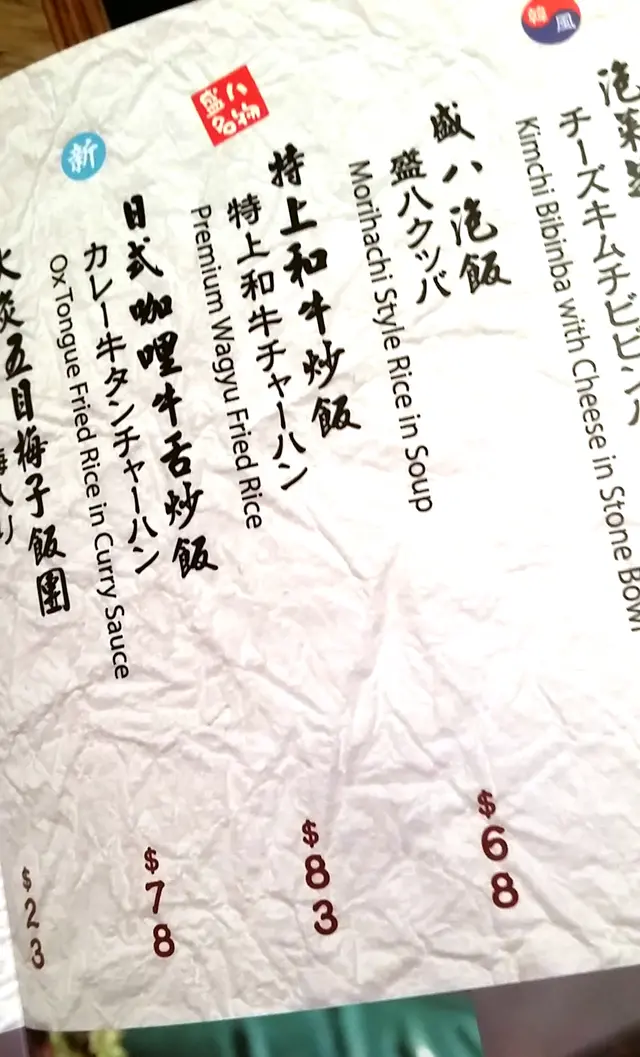 韓風
チーズキムチビビンバ
Kimchi Bibinba with Cheese in Stone Bowl
盛八泡飯
盛ハクッパ
Morihachi Style Rice in Soup
$68
盛八名物
特上和牛炒飯
特上和牛チャーハン
Premium Wagyu Fried Rice
$83
新
日式咖哩牛舌炒飯
カレー牛タンチャーハン
Ox Tongue Fried Rice in Curry Sauce
$78
五目梅子飯團
$23